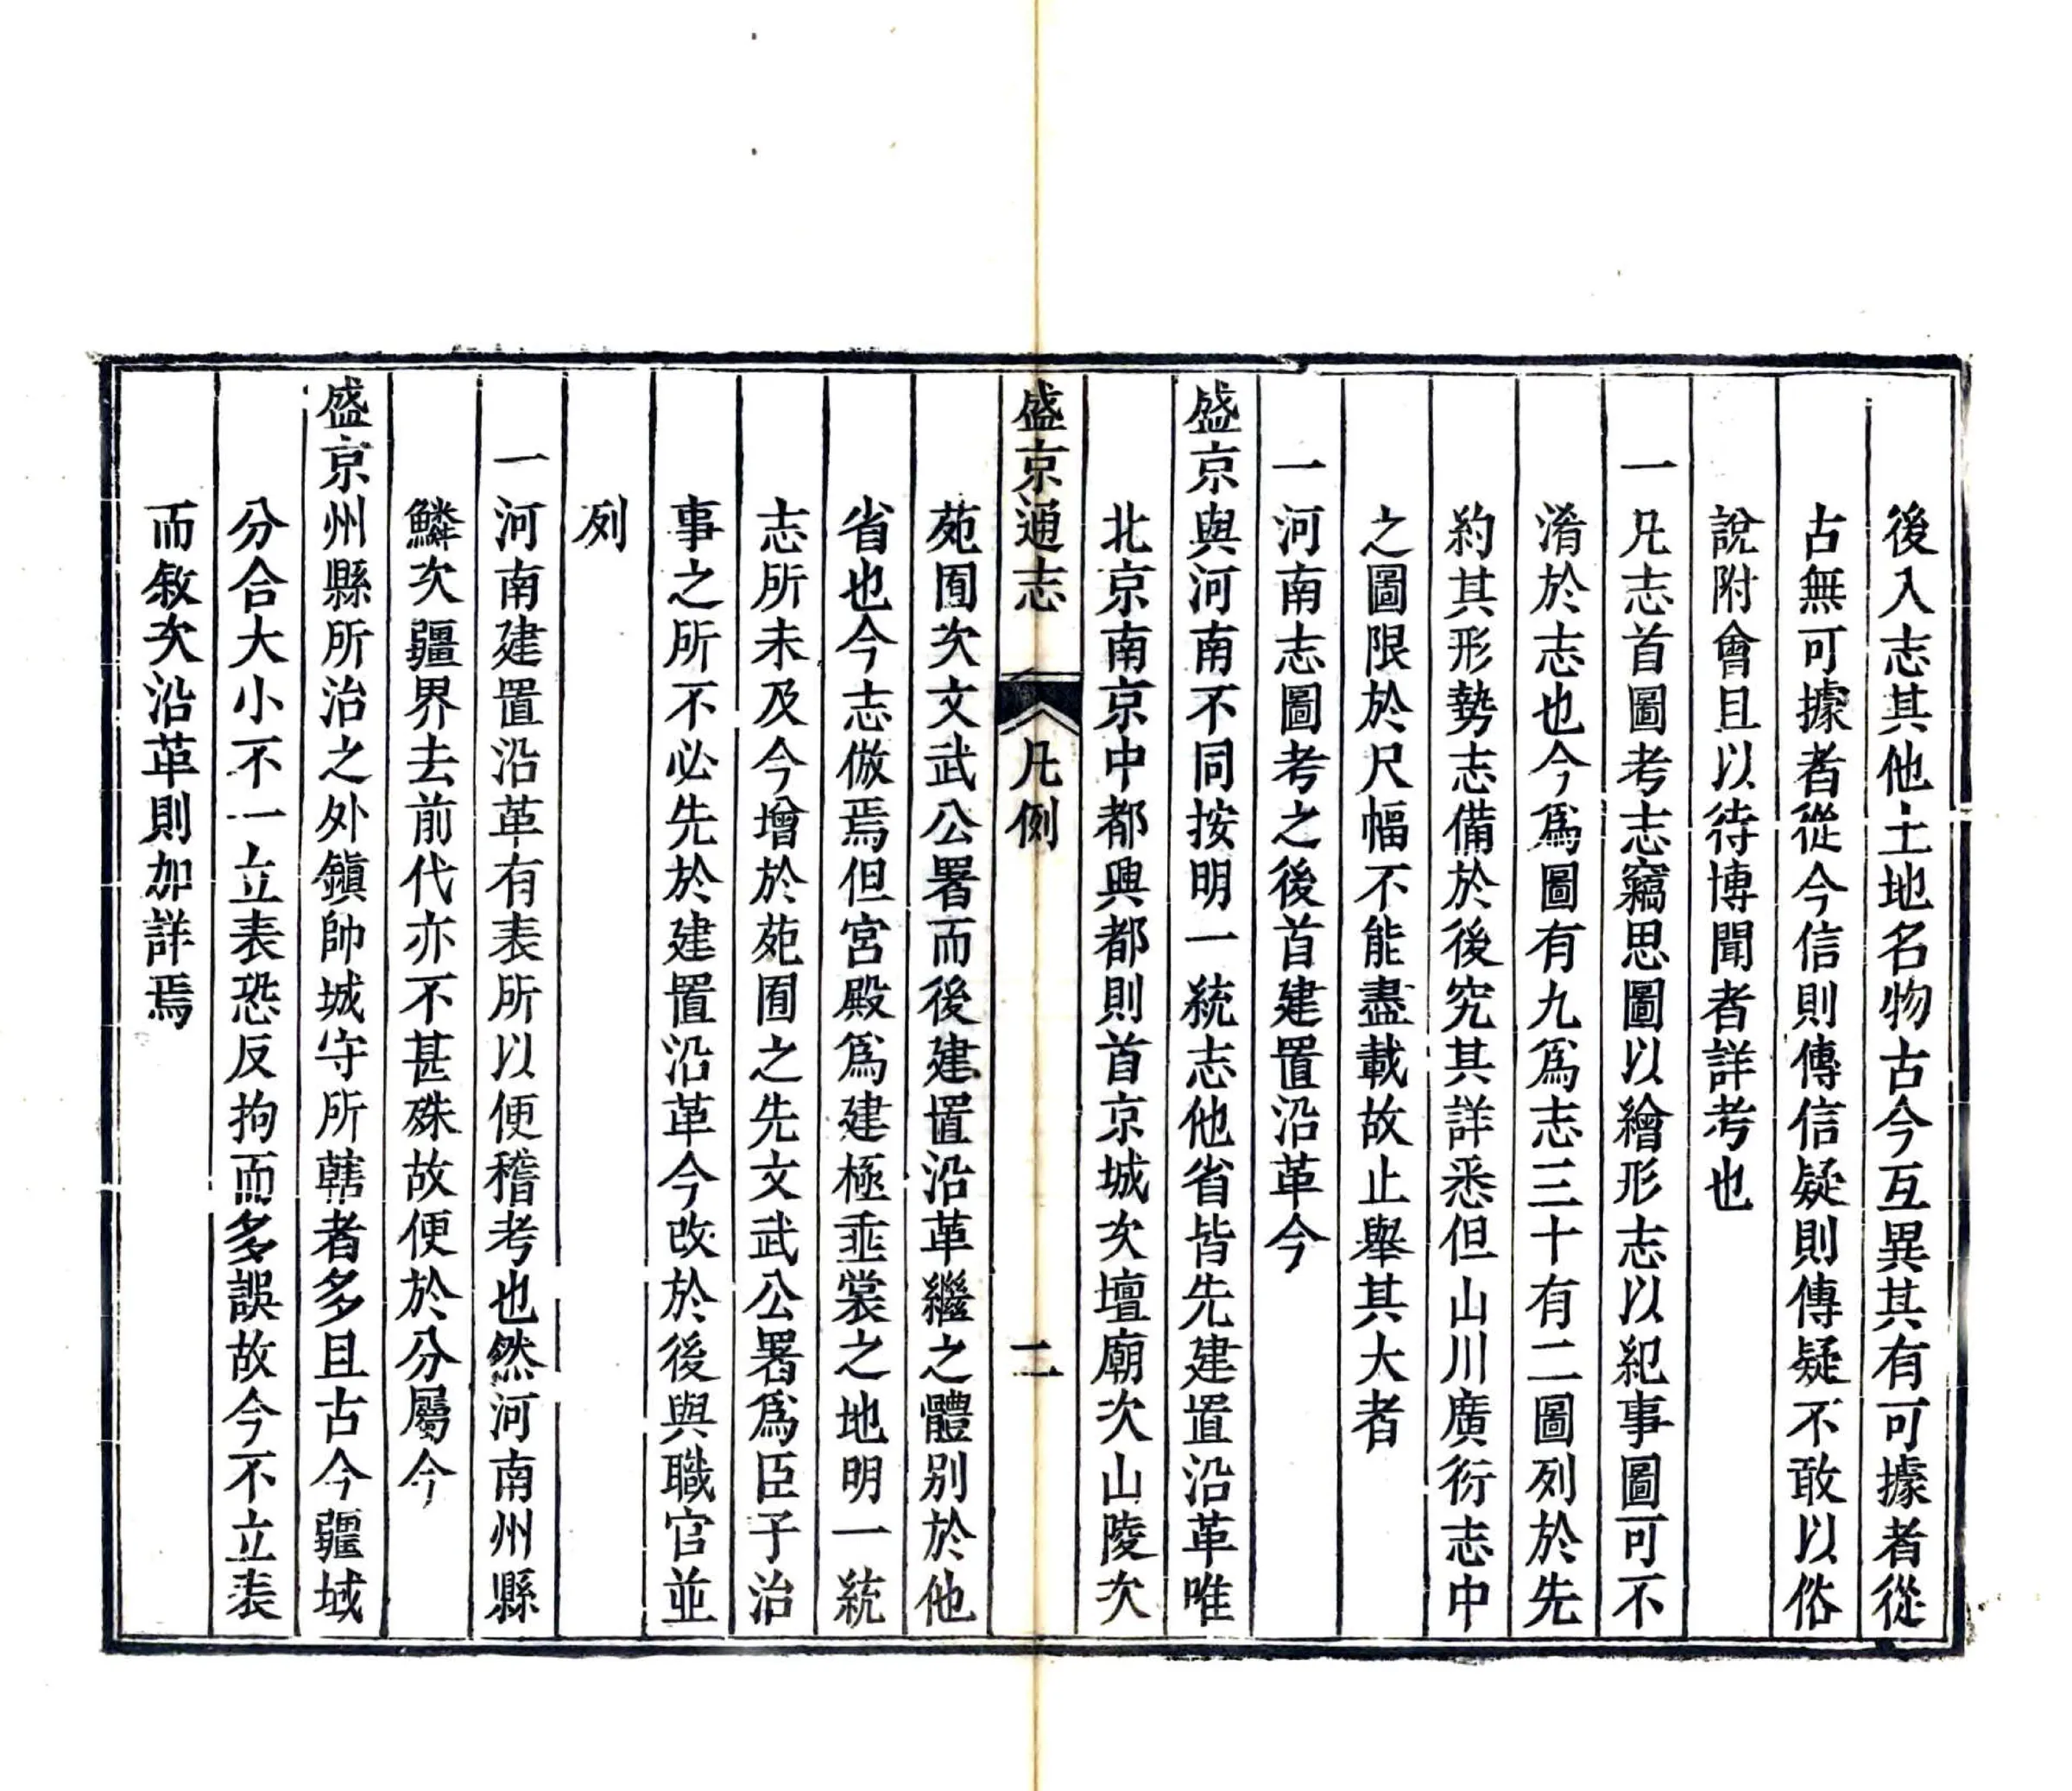 後入志其他土地名物古今互異其有可據者從
古無可據者從今信則傳信疑則傳疑不敢以俗
說附會且以待博聞者詳考也
一凡志首圖考志竊思圖以繪形志以紀事圖可不
淆於志也今爲圖有九爲志三十有二圖列於先
約其形勢志備於後究其詳悉但山川廣衍志中
之圖限於尺幅不能盡載故止舉其大者
一河南志圖考之後首建置沿革今
盛京與河南不同按明一統志他省皆先建置沿革唯
北京南京中都興都則首京城次壇廟次山陵次
盛京通志 凡例 二
苑囿次文武公署而後建置沿革繼之體別於他
省也今志倣焉但宮殿爲建極垂裳之地明一統
志所未及今增於苑囿之先文武公署爲臣子治
事之所不必先於建置沿革今改於後與職官並
列
一河南建置沿革有表所以便稽考也然河南州縣
鱗次疆界去前代亦不甚殊故便於分屬今
盛京州縣所治之外鎮帥城守所轄者多且古今疆域
分合大小不一立表恐反拘而多誤故今不立表
而敘次沿革則加詳焉